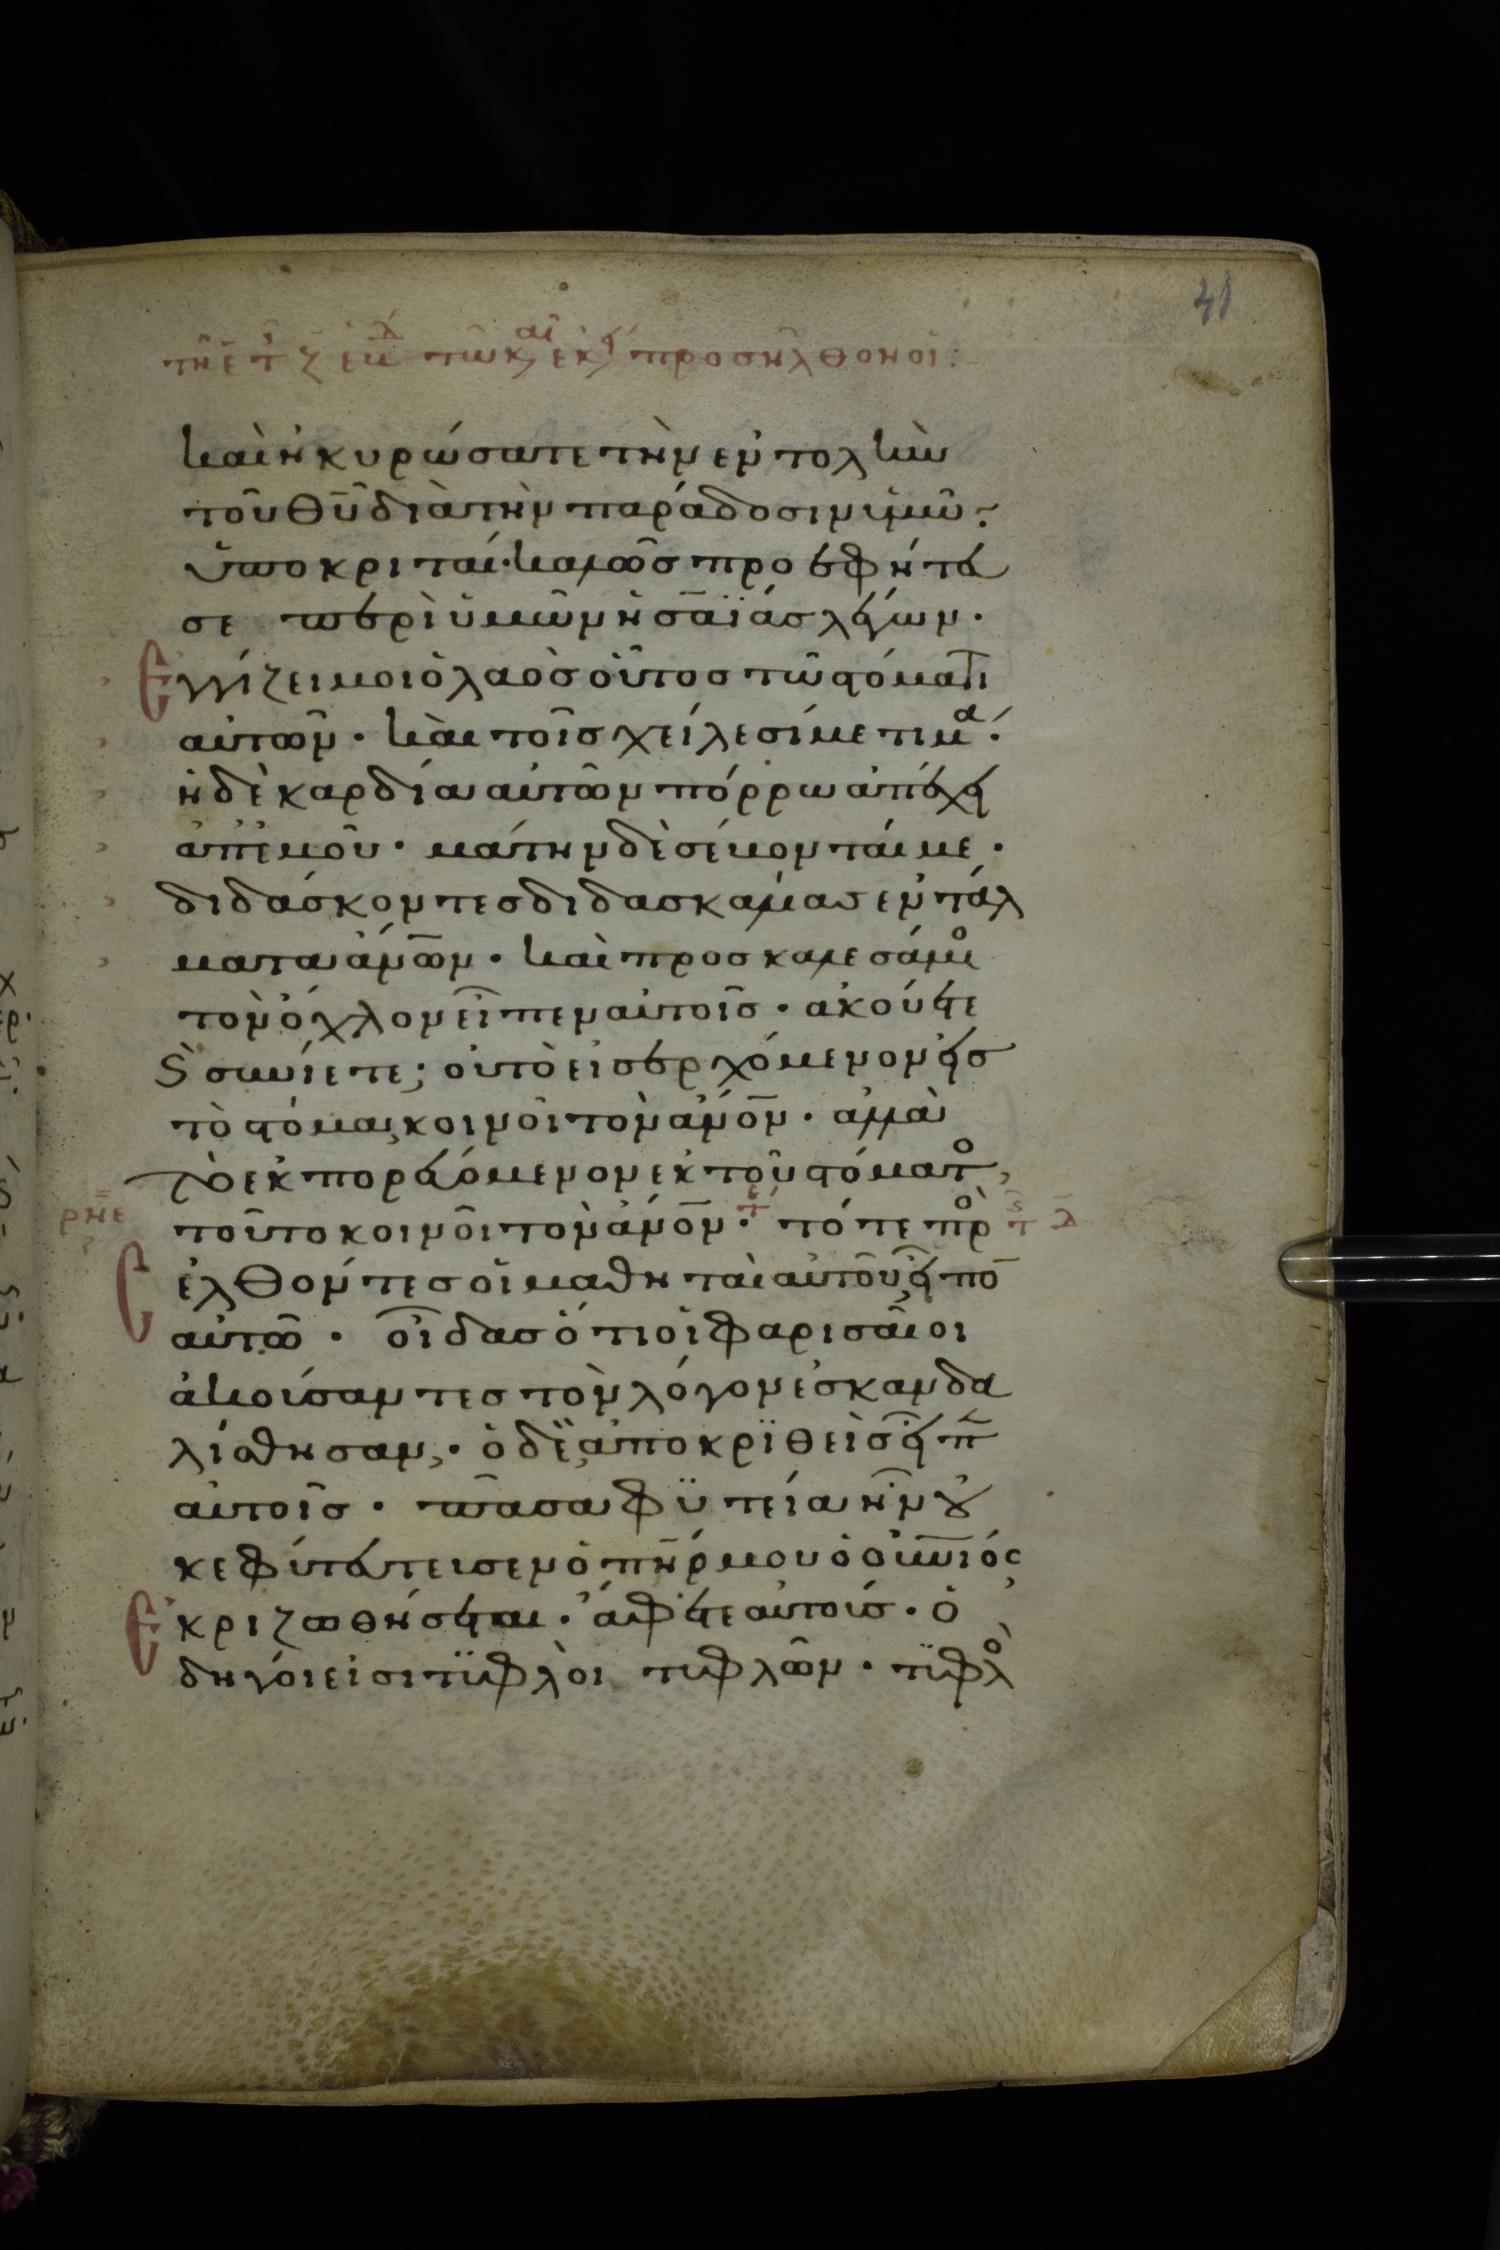 τῆ ε τῆς ζ ἑβδ τῶ καιρῶ ἐκείν προσῆλθον οἱ:
41
καὶ ἠκυρώσατε τὴν ἐντολὴν
τοῦ θῦ διὰ τὴν παράδοσιν ὑμῶ·
ὑποκριταί· καλῶς προεφήτευ
σε περὶ ὑμῶν ἠσαΐας λέγων·
Εγγίζει μοι ὁ λαὸς οὗτος τῶ στόματι
αὐτῶν· καὶ τοῖς χείλεσί με τιμᾶ·
ἡ δὲ καρδία αὐτῶν πόρρω ἀπέχει
ἀπ' ἐμοῦ· μάτην δὲ σέβονταί με·
διδάσκοντες διδασκαλίας ἐντάλ
ματα ἀνων· καὶ προσκαλεσάμενος
τὸν ὄχλον εἶπεν αὐτοῖς· ἀκούετε
καὶ συνίετε· οὐ τὸ εἰσερχόμενον εἰς
τὸ στόμα, κοινοῖ τὸν ἀνον· ἀλλὰ
τὸ ἐκπορευόμενον ἐκ τοῦ στόματος,
τοῦτο κοινοῖ τὸν ἀνον· τότε προσ
ρνε
ελθόντες οἱ μαθηταὶ αὐτοῦ εἶπον
αὐτῶ· οἶδας ὅτι οἱ φαρισαῖοι
ἀκούσαντες τὸν λόγον ἐσκανδα
λίσθησαν,· ὁ δὲ, ἀποκριθεὶς εἶπεν
αὐτοῖς· πᾶσα φυτεία ἣν οὐ
κ ἐφύτευσεν ὁ πηρ μου ὁ οὐνιός
Εκριζωθήσεται· ἄφετε αὐτούς· ὁ
δηγοί εἰσι τυφλοὶ τυφλῶν· τυφλὸς